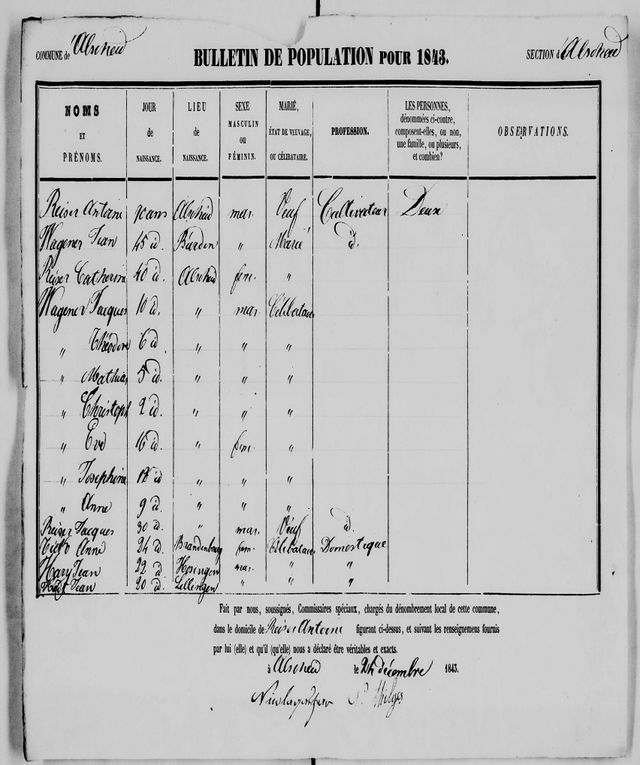 COMMUNE de Alscheid BULLETIN DE POPULATION POUR 1843. SECTION d'Alscheid
NOMS ET PRÉNOMS. JOUR de NAISSANCE. LIEU de NAISSANCE. SEXE MASCULIN OU FÉMININ. MARIÉ, ÉTAT DE VEUVAGE, OU CÉLIBATAIRE. PROFESSION. LES PERSONNES, dénommées ci-contre, composent-elles, ou non, une famille, ou plusieurs, et combien? OBSERVATIONS.
Reiser Antoine 90 ans Alscheid mas. Veuf Cultivateur Deux
Wagener Jean 45 id. Burden " Marié id.
Reiser Catherine 40 id. Alscheid fém. "
Wagener Jacques 10 id. " mas. Célibataire
" Théodore 6 id. " " "
" Mathias 5 id. " " "
" Christoph 2 id. " " "
" Eve 16 id. " fém. "
" Josephine id. " " "
" Anne 9 id. " " "
Reiser Jacques 30 id. " mas. Veuf id.
Anne 24 id. Brandenburg fém. Célibataire Domestique
Jean 22 id. Hosingen mas. " "
Jean 20 id. Lellingen " " "
Fait par nous, soussignés, Commissaires spéciaux, chargés du dénombrement local de cette commune,
dans le domicile de Reiser Antoine figurant ci-dessus, et suivant les renseignemens fournis
par lui (elle) et qu'il (qu'elle) nous a déclaré être véritables et exacts.
à Alscheid le 24 décembre 1843.